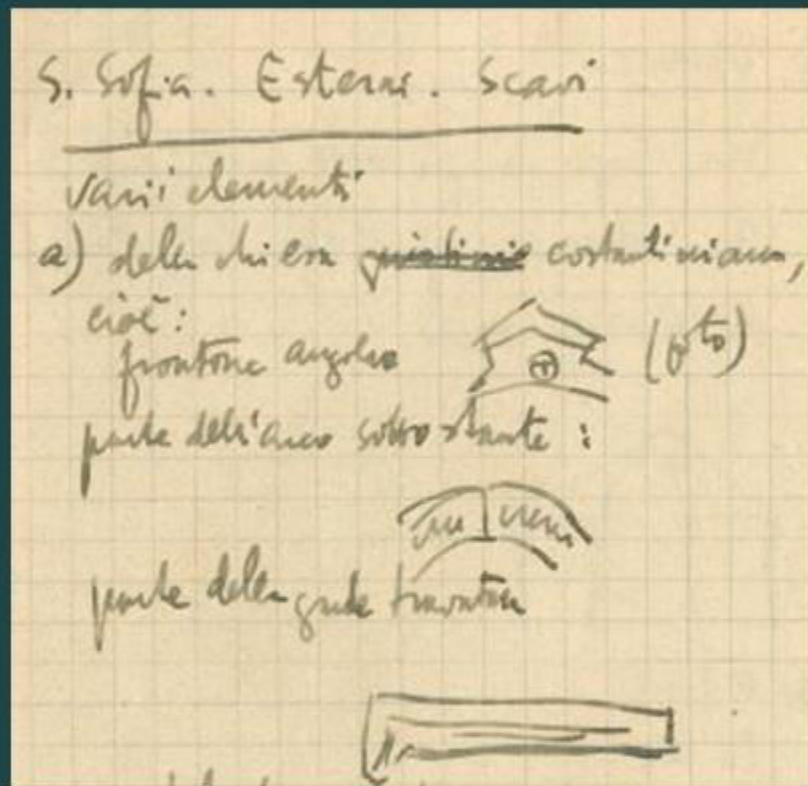 S. Sofia. Esterni. Scavi
varii elementi
a) della chiesa costantiniana,
cioè:
frontone angolare (fto)
parte dell'arco sottostante:
parte della grande